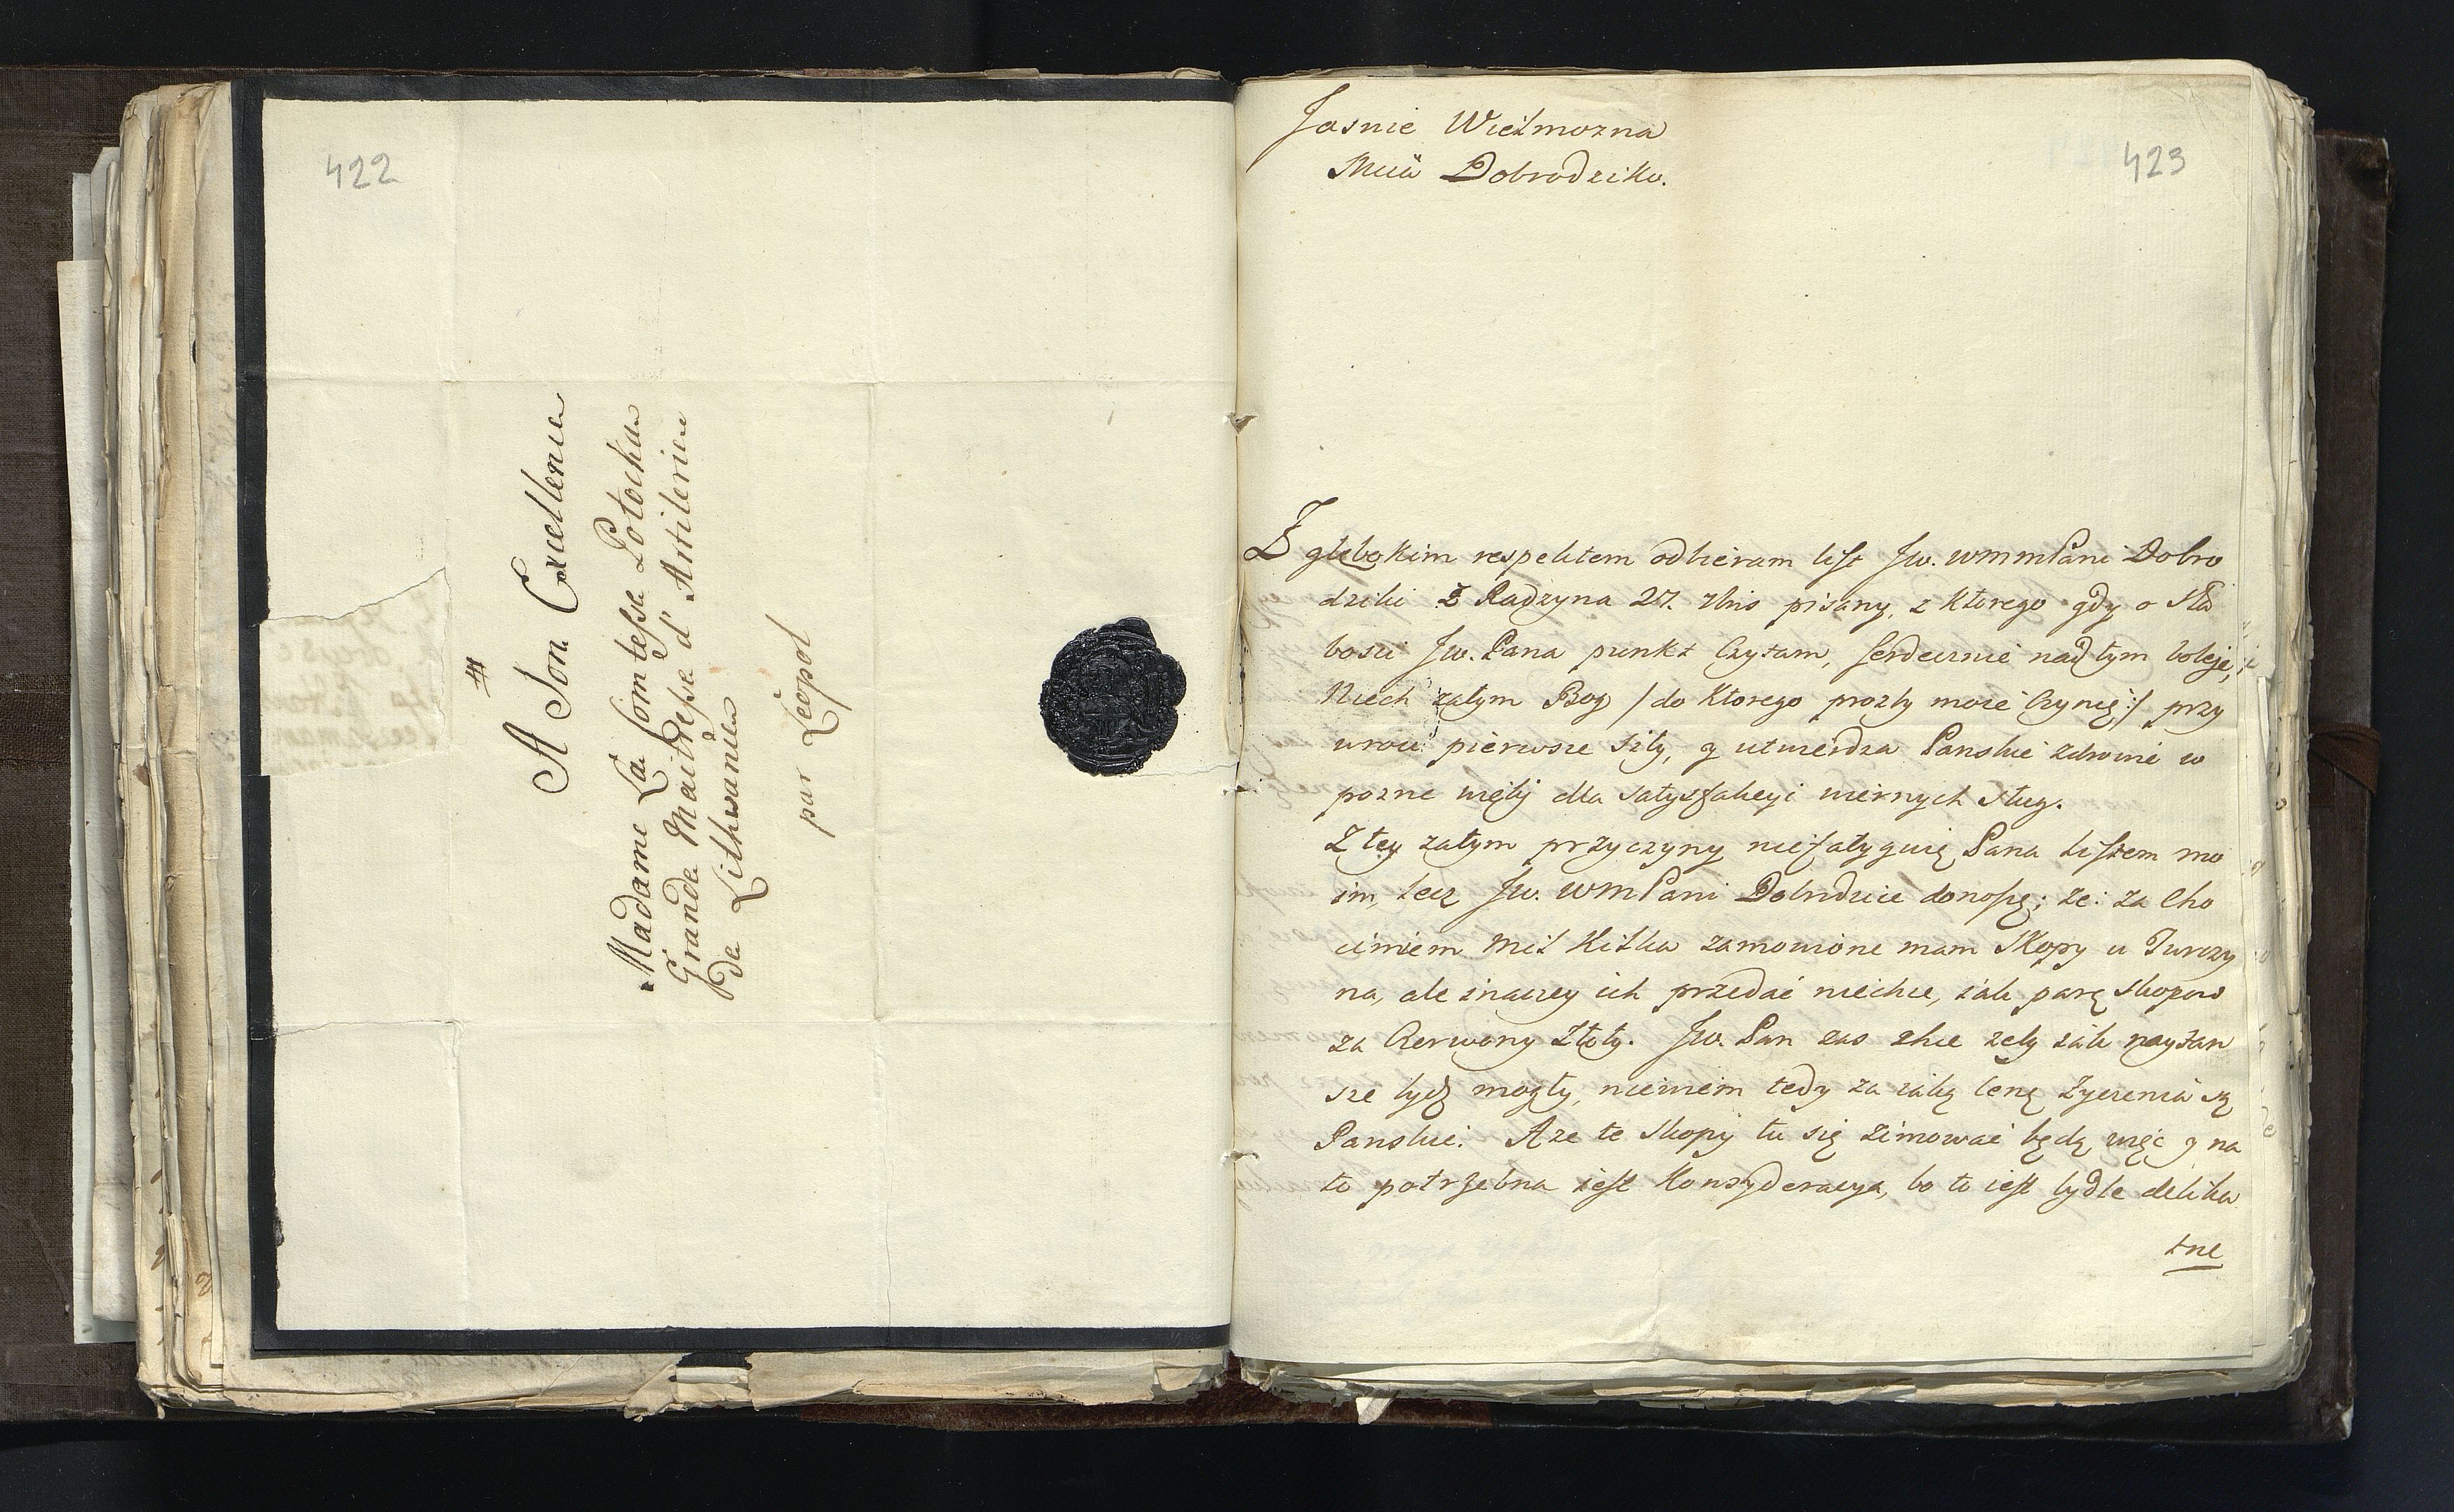 422
#
A Son Excellence
Madame La Comtesse Potocka
Grande Maitresse d'Artilerie
de Lithuanie
par Léopol
423
Jasnie Wielmozna
Mcia Dobrodziko.
Z głębokim respektem odbieram list Jw. WMMPani Dobro
dziki z Radzyna 27. 7bris pisany, z ktorego gdy o sła
bosci Jw. Pana punkt czytam, serdecznie nad tym boleję,
Niech zatym Bog /: do ktorego prozby moie czynię :/ przy
wroci pierwsze siły, y utwierdza Panskie zdrowie w
pozne wieki dla satysfakcyi wiernych sług.
Z tey zatym przyczyny niefatyguię Pana listem mo
im, lecz Jw. WMPani Dobrodzice donoszę; ze: za Cho
cimiem mil kilka zamowione mam skopy u Turczy
na, ale inaczey ich przedać niechce, iak parę skopow
za Czerwony Złoty. Jw. Pan zas chce zeby iak naytan
sze bydź mogły, niewiem tedy za iaką cenę zyczenia są
Panskie: A ze te skopy tu się zimować będą, więc y na
to potrzebna iest konsyderacya, bo to iest bydle delika
tne